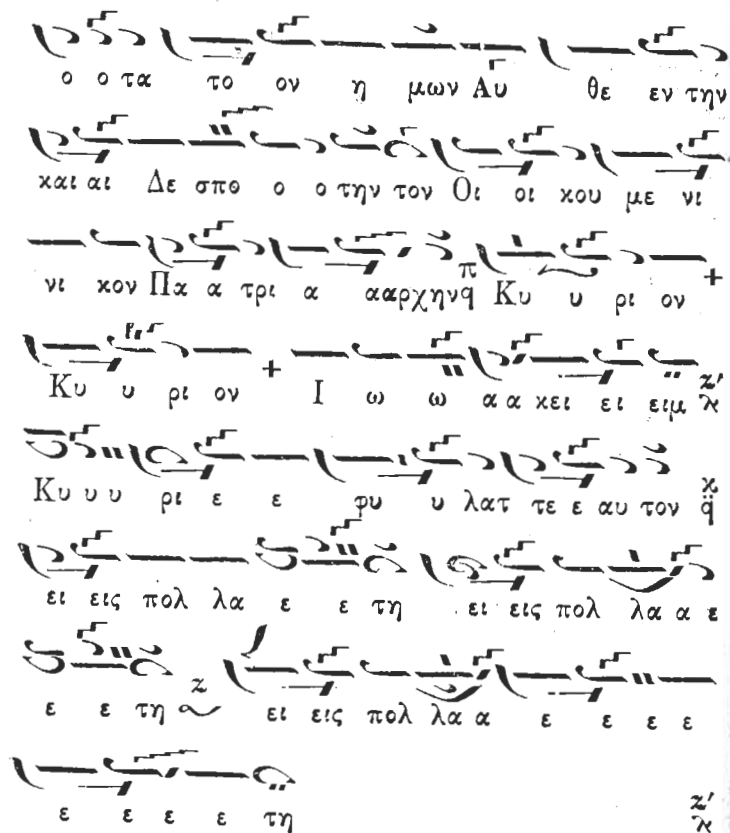 ο ο τα το ον η μων Αυ θε εν την
και αι Δε σπο ο ο την τον Οι οι κου με νι
νι κον Πα α τρι α α αρχην π q Κυ υ ρι ον +
Κυ υ ρι ον + Ι ω ω α α κει ει ειμ ζ'
Κυ υ υ ρι ε ε φυ υ λατ τε ε αυ τον κ q
ει εις πολ λα ε ε τη ει εις πολ λα α ε
ε ε τη ζ ει εις πολ λα α ε ε ε ε
ε ε ε ε τη ζ'